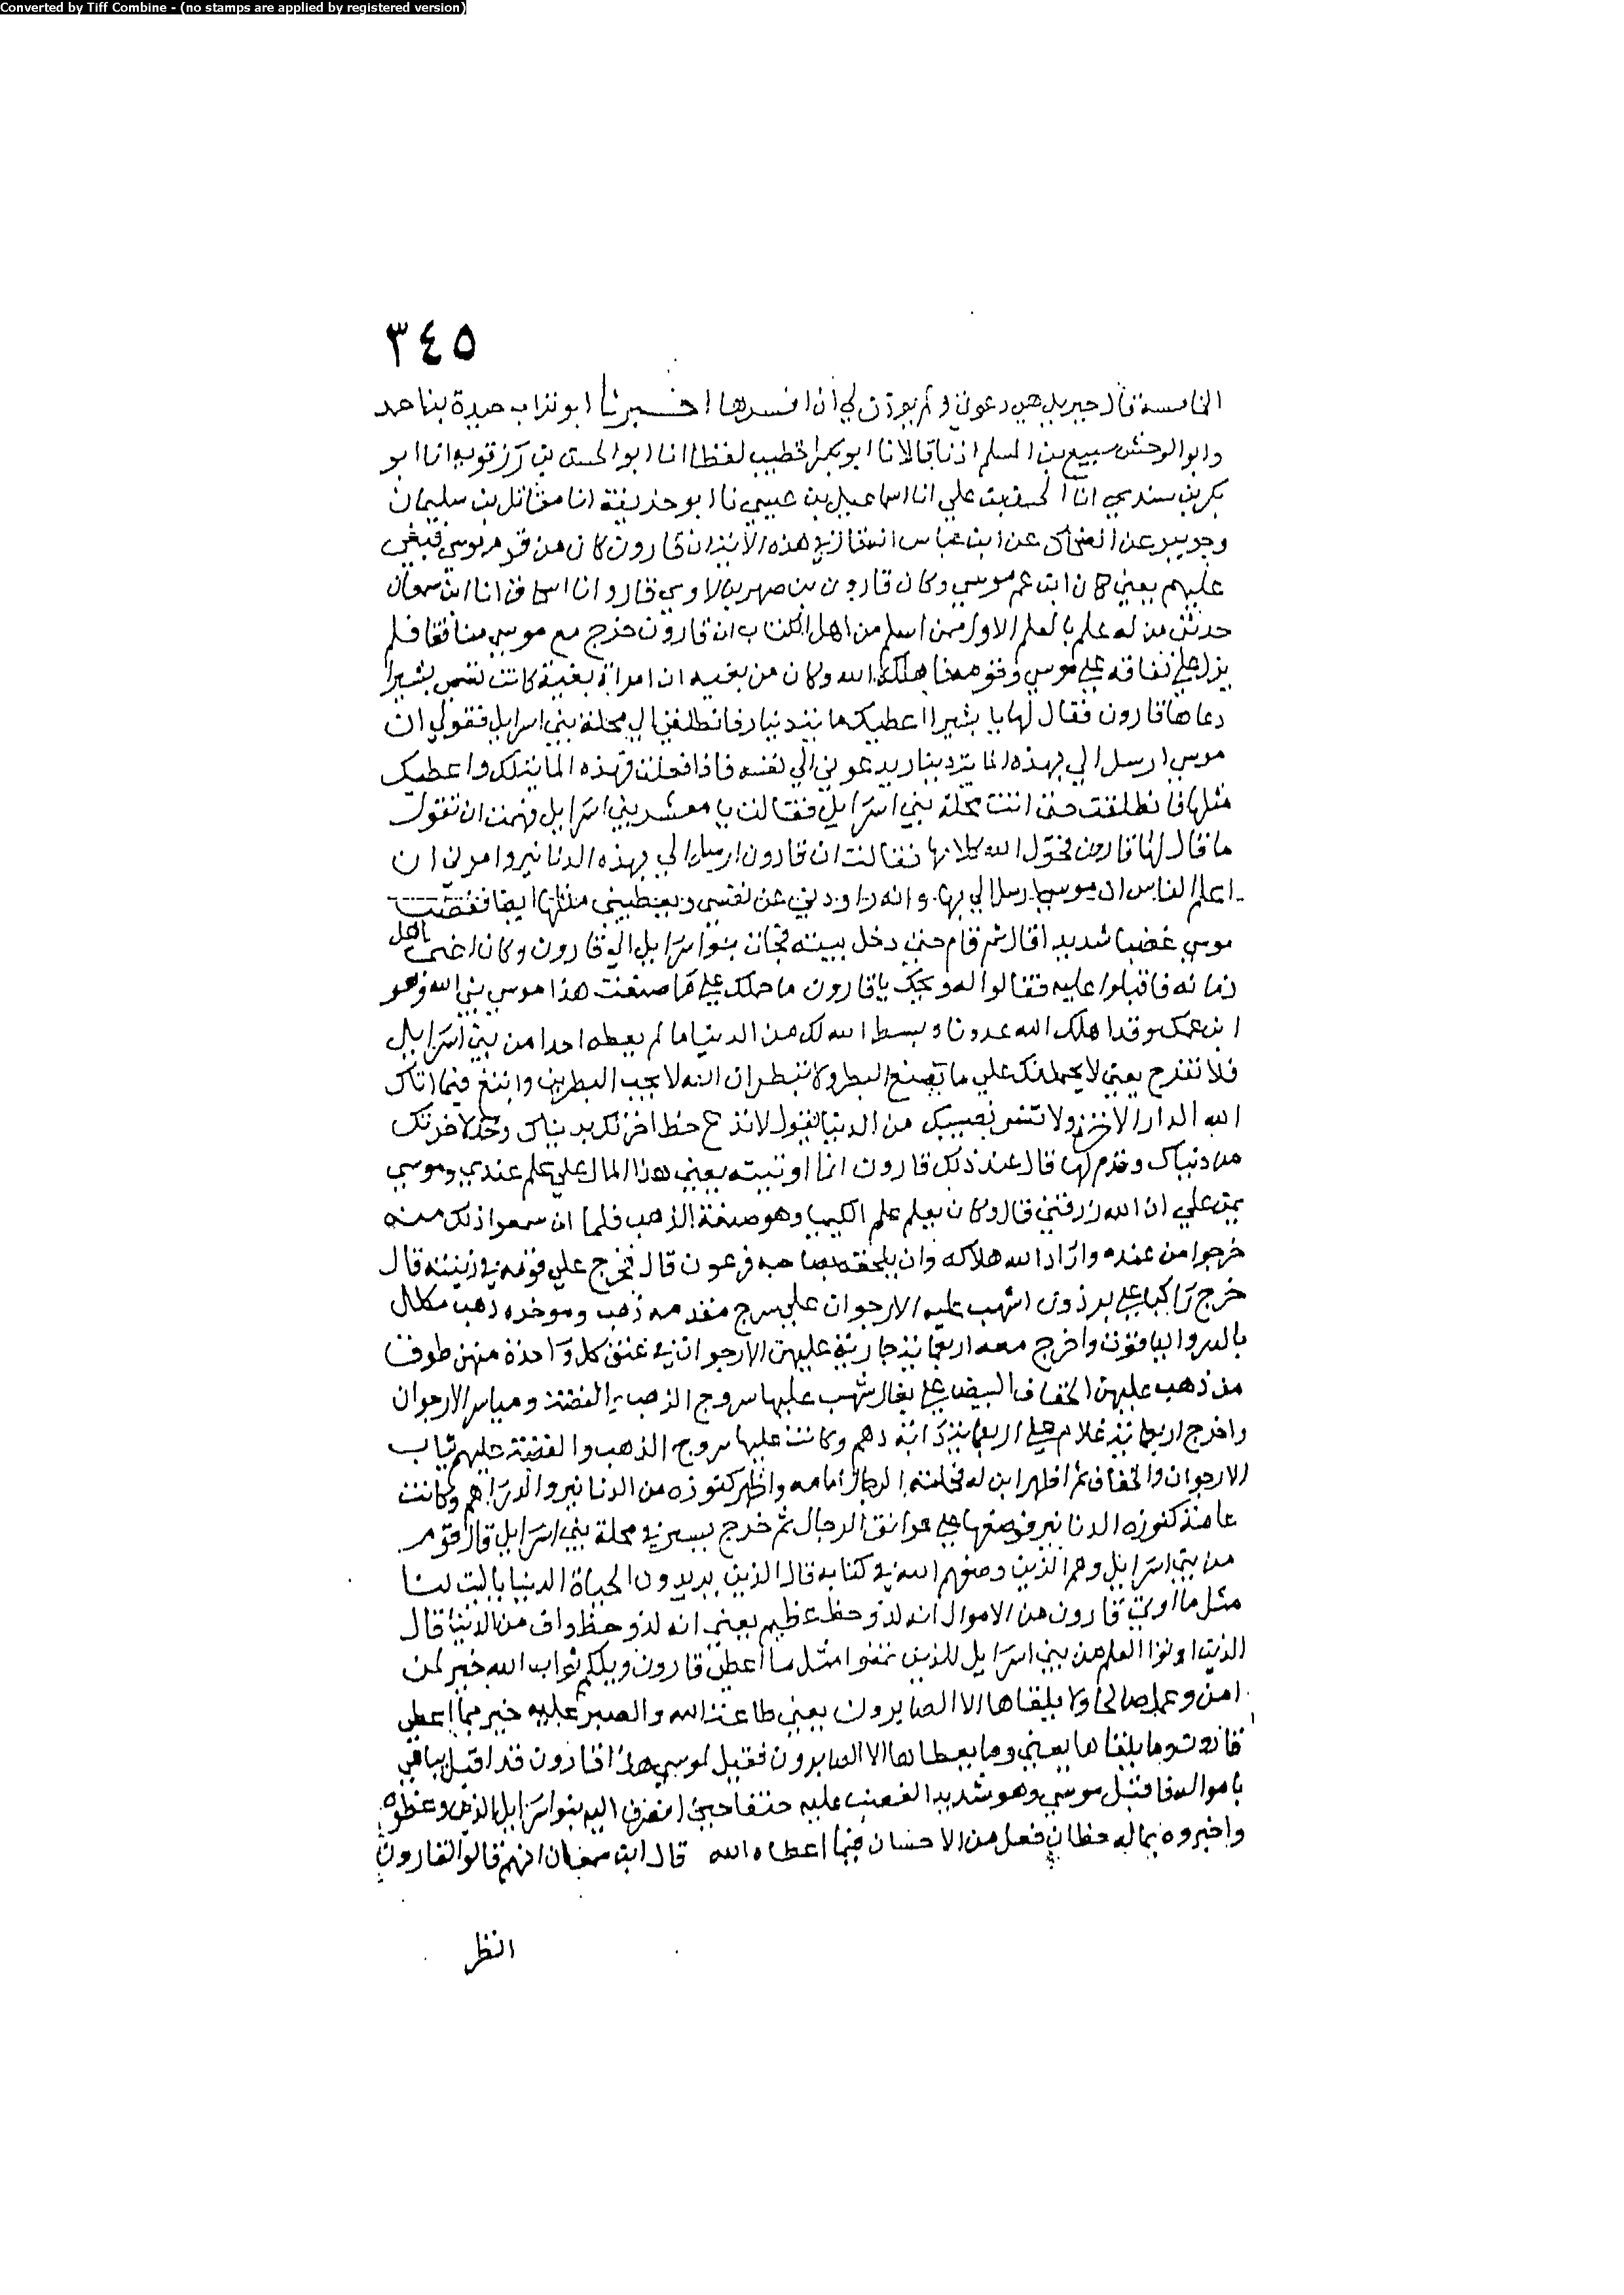 Converted by Tiff Combine - (no stamps are applied by registered version)
٣٤٥
الخامسة قال جبريل هي دعوتي ولم يوذن لي ان افسرها اخبرنا ابو تراب حيدرة بن احمد
وابو الوحش سبيع بن المسلم اذنا قالا نا ابو بكر الخطيب لفظا انا ابو الحسن بن رزقويه انا ابو
بكر بن سندي انا الحسن بن علي انا اسماعيل بن عيسي نا ابو حذيفة انا مقاتل بن سليمان
وجويبر عن الضحاك عن ابن عباس انه قال في هذه الاية ان قارون كان من قوم موسي فبغي
عليهم يعني كان ابن عم موسي وكان قارون بن صهر بن لاوي قال وانا اسحاق انا ابن سمعان
حدثني من له علم بالعلم الاول ممن اسلم من اهل الكتاب ان قارون خرج مع موسي منافقا فلم
يزل علي نفاقه علي موسي وقومه فاهلكه الله وكان من بغيه ان امراة بغية كانت تسمي بشيرا
دعاها قارون فقال لها يا بشيرا اعطيك مايتي دينار فانطلقي الي محلة بني اسرايل فقولي ان
موسي ارسل الي بهذه المايتي دينار يدعوني الي نفسه فاذا فعلت فهذه المايتي لك واعطيك
مثلها فانطلقت حتي اتت محلة بني اسرايل فقالت يا معشر بني اسرايل فهمت ان تقول
ما قال لها قارون فحول الله كلامها فقالت ان قارون ارسل الي بهذه الدنانير وامرني ان
اعلم الناس ان موسي ارسل الي بها وانه راودني عن نفسي ويعطيني مثلها ايضا فغضب
موسي غضبا شديدا قال ثم قام حتي دخل بيته فجات بنو اسرايل الي قارون وكان اغني اهل
زمانه فاقبلوا عليه فقالوا له ويحك يا قارون ما حملك علي ما صنعت هذا موسي نبي الله وهو
ابن عمك وقد اهلك الله عدونا وبسط الله لك من الدنيا ما لم يعطه احدا من بني اسرايل
فلا تفرح يعني لا يحملنك علي ما تصنع البطر ولا تبطر ان الله لا يحب البطرين وابتغ فيما اتاك
الله الدار الاخرة ولا تنس نصيبك من الدنيا يقول لا تدع حظ اخرتك بدنياك وخذ لاخرتك
من دنياك وقدم لها قال عند ذلك قارون انما اوتيته يعني هذا المال علي علم عندي وموسي
يمن علي ان الله رزقني قال وكان يعلم علم الكيميا وهو صنعة الذهب فلما ان سمعوا ذلك منه
خرجوا من عنده واراد الله هلاكه وان يلحقه بصاحبه فرعون قال فخرج علي قومه في زينته قال
خرج راكبا علي برذون اشهب عليه الارجوان علي سرج مقدمه ذهب وموخره ذهب مكلل
بالدر والياقوت واخرج معه اربعماية جارية عليهن الارجوان في عنق كل واحدة منهن طوق
من ذهب عليهن الخفاف البيض علي بغال شهب عليها سروج الذهب والفضة ومياسر الارجوان
واخرج اربعماية غلام علي اربعماية دابة دهم وكانت عليها سروج الذهب والفضة عليهم ثياب
الارجوان والخفاف ثم اظهر ابن له فحملته الرجال امامه واظهر كنوزه من الدنانير والدراهم وكانت
عامة كنوزه الدنانير فوضعها علي عواتق الرجال ثم خرج يسير في محلة بني اسرايل قال قوم
من بني اسرايل وهم الذين وصفهم الله في كتابه قال الذين يريدون الحياة الدنيا يا ليت لنا
مثل ما اوتي قارون من الاموال انه لذو حظ عظيم يعني انه لذو حظ واف من الدنيا قال
الذين اوتوا العلم من بني اسرايل للذين تمنوا مثل ما اعطي قارون ويلكم ثواب الله خير لمن
امن وعمل صالحا ولا يلقاها الا الصابرون يعني طاعة الله والصبر عليه خير مما اعطي
قارون وما يلقاها يعني وما يعطاها الا الصابرون فقيل لموسي هذا قارون قد اقبل يباهي
باموالـه فاقبل موسي وهو شديد الغضب عليه حنقا حين انصرف اليه بنو اسرايل الذين وعظوه
واخبروه بماله حظا فعل من الاحسان فيما اعطاه الله قال ابن سمعان انهم قالوا لقارون
انظر